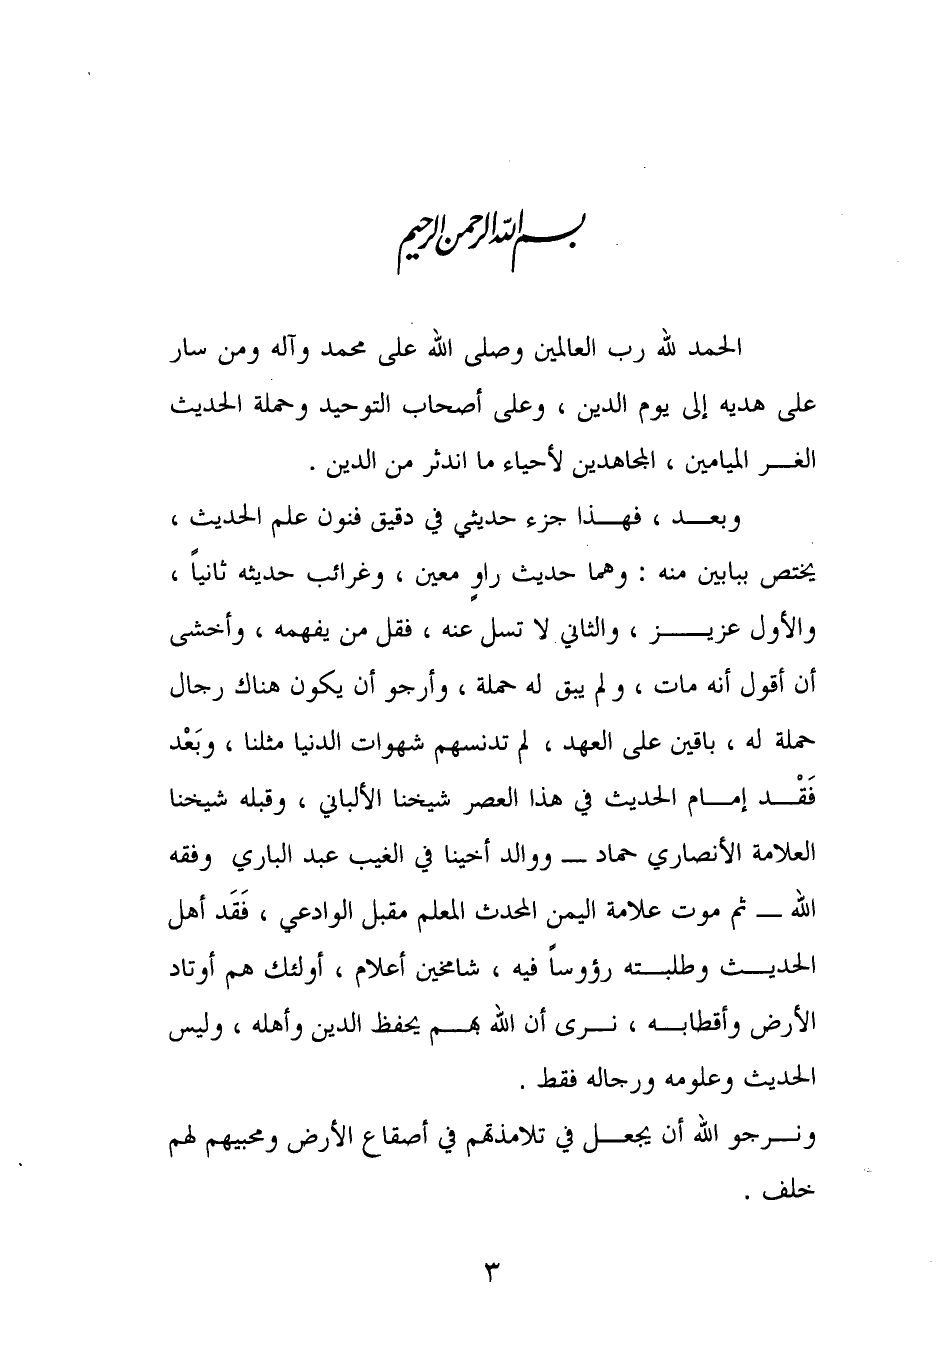 بسم الله الرحمن الرحيم
الحمد لله رب العالمين وصلى الله على محمد وآله ومن سار
على هديه إلى يوم الدين ، وعلى أصحاب التوحيد وحملة الحديث
الغـر الميامين ، المجاهدين لأحياء ما اندثر من الدين .
وبعـد ، فهـذا جزء حديثي في دقيق فنون علم الحديث ،
يختص ببابين منه : وهما حديث راوٍ معين ، وغرائب حديثه ثانياً ،
والأول عزيـز ، والثاني لا تسل عنه ، فقل من يفهمه ، وأخشى
أن أقول أنه مات ، ولم يبق له حملة ، وأرجو أن يكون هناك رجال
حملة له ، باقين على العهد ، لم تدنسهم شهوات الدنيا مثلنا ، وبَعْد
فَقْـد إمـام الحديث في هذا العصر شيخنا الألباني ، وقبله شيخنا
العلامة الأنصاري حماد ــ ووالد أخينا في الغيب عبد الباري وفقه
الله ــ ثم موت علامة اليمن المحدث المعلم مقبل الوادعي ، فَقَد أهل
الحديـث وطلبـته رؤوساً فيه ، شامخين أعلام ، أولئك هم أوتاد
الأرض وأقطابـه ، نـرى أن الله بهـم يحفظ الدين وأهله ، وليس
الحديث وعلومه ورجاله فقط .
ونـرجو الله أن يجعـل في تلامذتهم في أصقاع الأرض ومحبيهم لهم
خلف .
٣